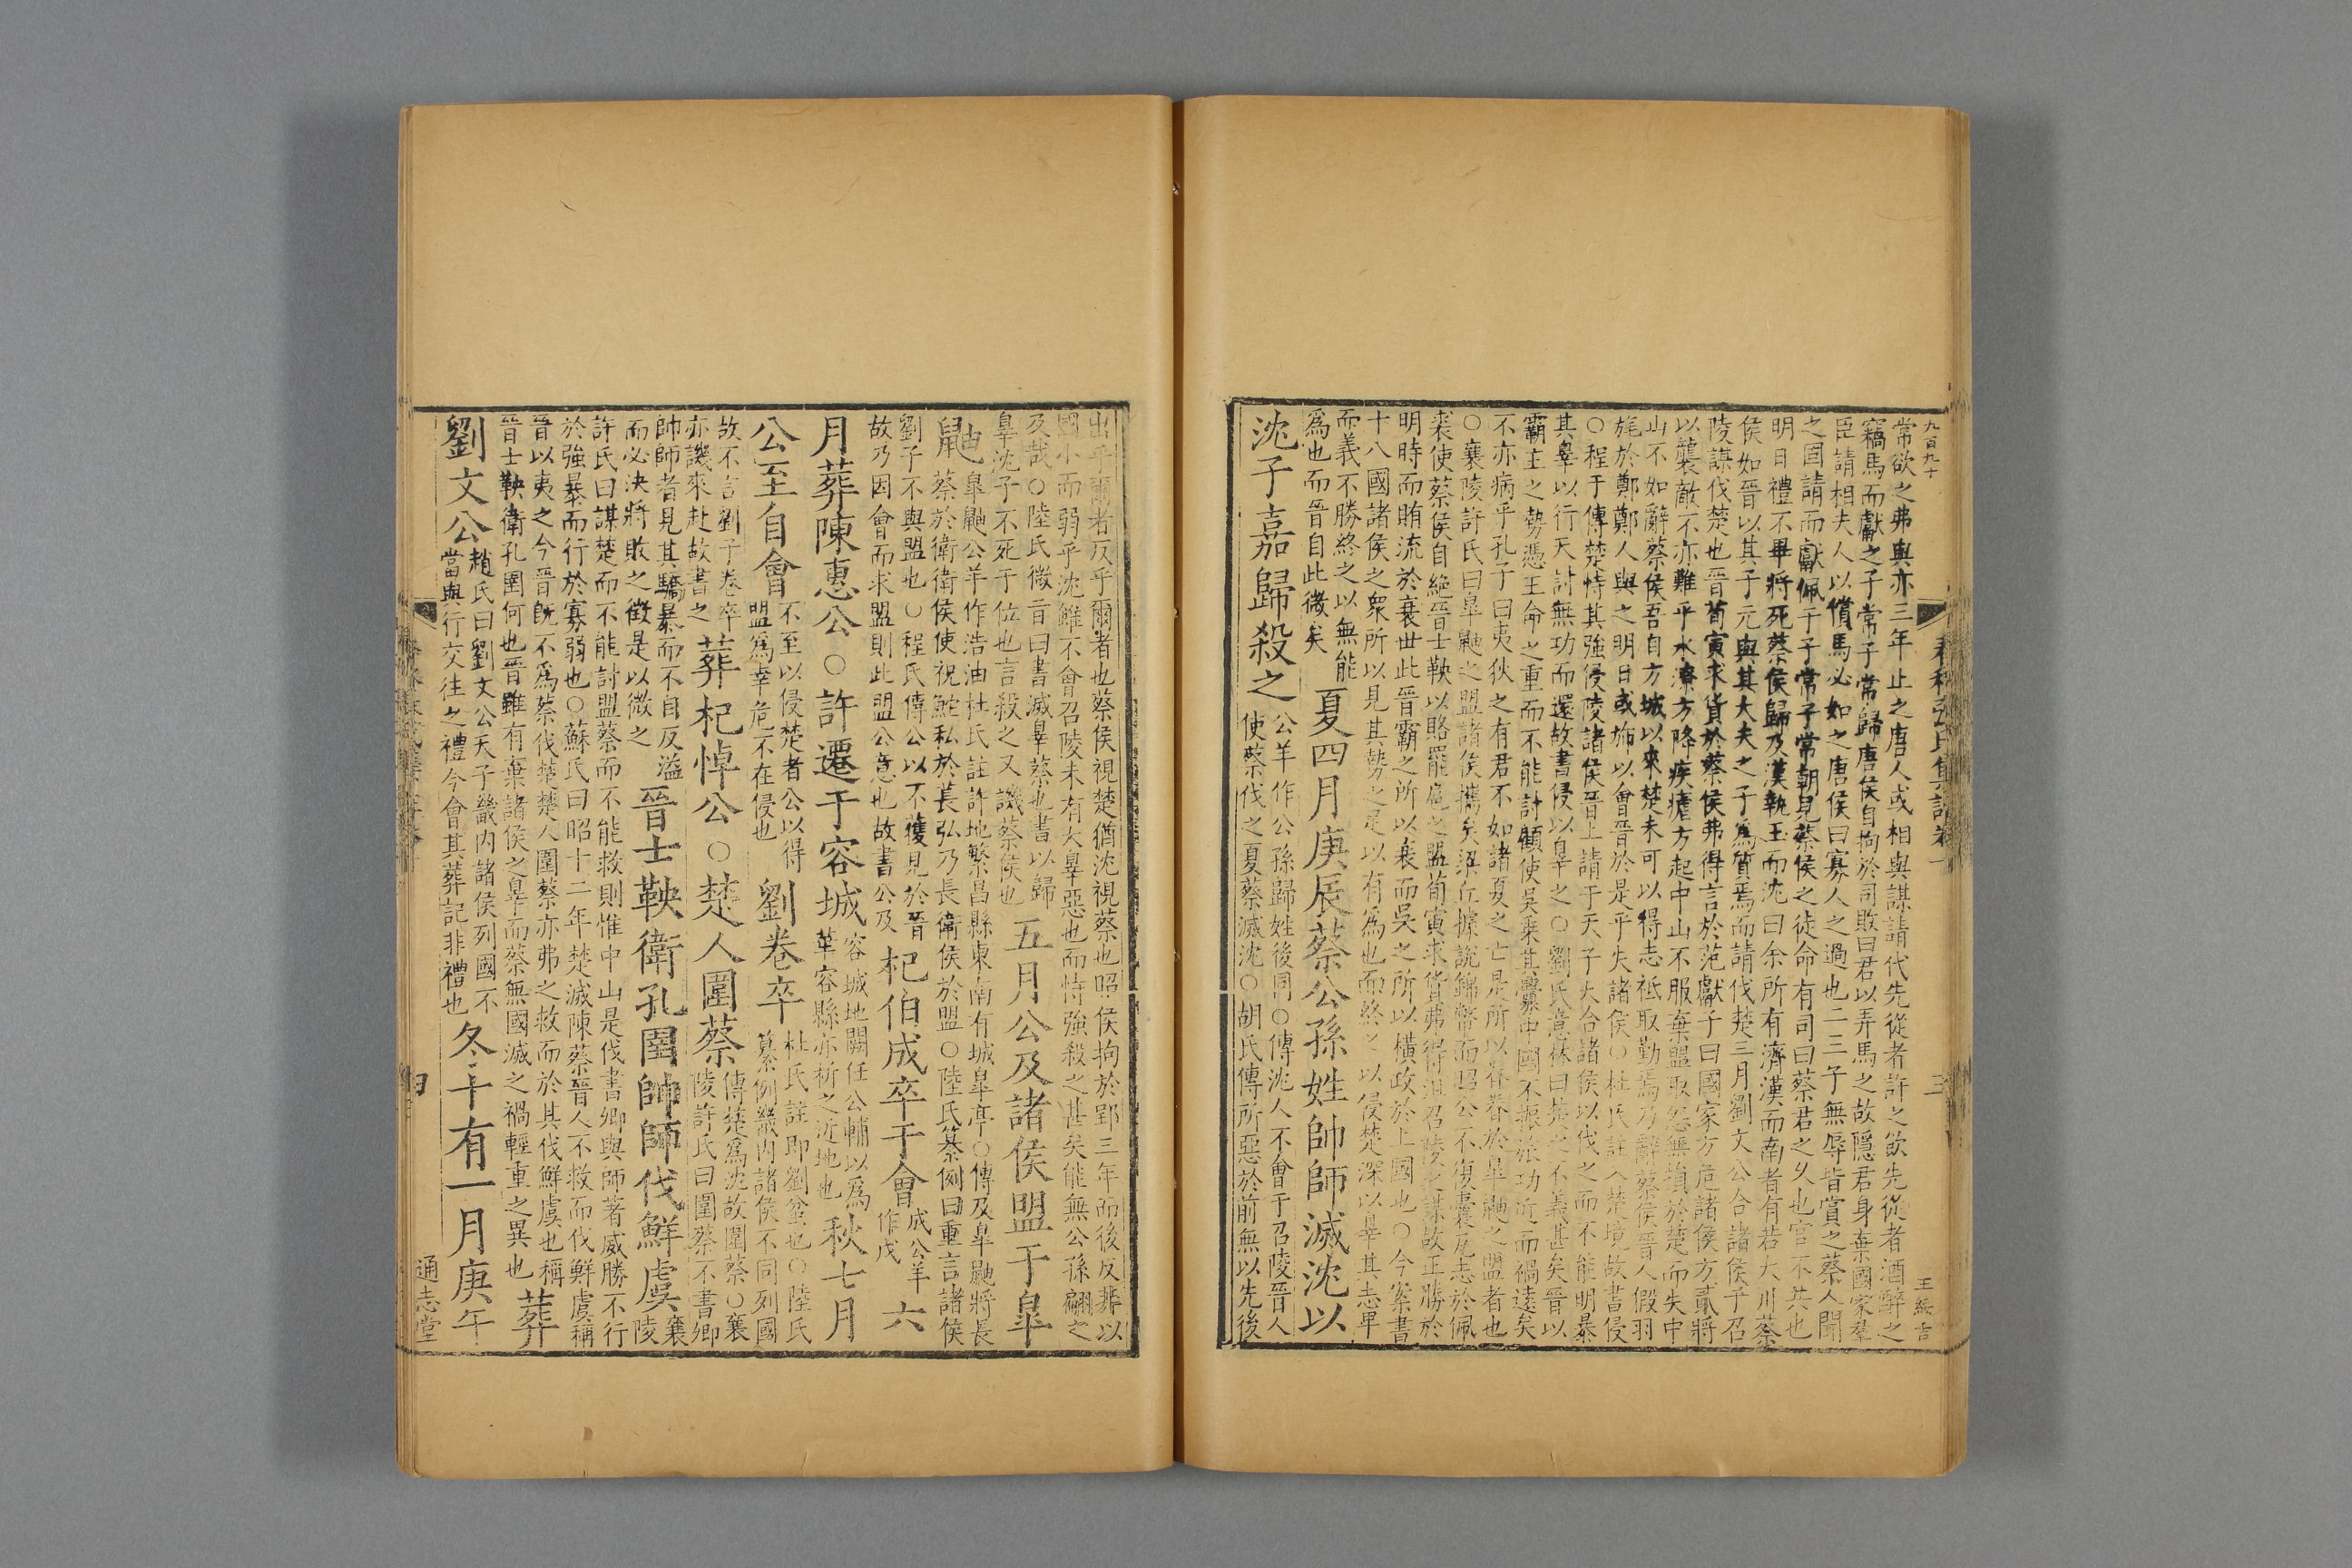 九百九十
常欲之弗與亦三年止之唐人或相與謀請代先從者許之飲先從者酒醉之
竊馬而獻之子常子常歸唐侯自拘於司敗曰君以弄馬之故隱君身棄國家羣
臣請相夫人以償馬必如之唐侯曰寡人之過也二三子無辱皆賞之蔡人聞
之固請而獻佩于子常子常朝見蔡侯之徒命有司曰蔡君之久也官不共也
明日禮不畢將死蔡侯歸及漢執玉而沈曰余所有濟漢而南者有若大川蔡
侯如晉以其子元與其大夫之子爲質焉而請伐楚三月劉文公合諸侯于召
陵謀伐楚也晉荀寅求貨於蔡侯弗得言於范獻子曰國家方危諸侯方貳將
以襲敵不亦難乎水潦方降疾瘧方起中山不服棄盟取怨無損於楚而失中
山不如辭蔡侯吾自方城以來楚未可以得志祗取勤焉乃辭蔡侯晉人假羽
旄於鄭鄭人與之明日或旆以會晉於是乎失諸侯○杜氏註入楚境故書侵
○程子傳楚恃其強侵陵諸侯晉上請于天子大合諸侯以伐之而不能明暴
其辠以行天討無功而還故書侵以辠之○劉氏意林曰楚之不義甚矣晉以
霸主之勢憑王命之重而不能討顧使吳乘其釁中國不振旅功近而禍遠矣
不亦病乎孔子曰夷狄之有君不如諸夏之亡是所以眷眷於臯鼬之盟者也
○襄陵許氏曰臯鼬之盟諸侯攜矣梁丘據說錦幣而昭公不復囊瓦志於佩
裘使蔡侯自絶晉士鞅以賂罷扈之盟荀寅求貨弗得沮召陵之謀故正勝於
明時而賄流於衰世此晉霸之所以衰而吳之所以橫政於上國也○今案書
十八國諸侯之衆所以見其勢之足以有爲也而終之以侵楚深以辠其志卑
而義不勝終之以無能
爲也而晉自此微矣
夏四月庚辰蔡公孫姓帥師滅沈以
沈子嘉歸殺之
公羊作公孫歸姓後同○傳沈人不會于召陵晉人
使蔡伐之夏蔡滅沈○胡氏傳所惡於前無以先後
春秋張氏集註卷十
三
王綏吉
出乎爾者反乎爾者也蔡侯視楚猶沈視蔡也昭侯拘於郢三年而後反非以
國小而弱乎沈雖不會召陵未有大辠惡也而恃強殺之甚矣能無公孫翩之
及哉○陸氏微旨曰書滅辠蔡也書以歸
辠沈子不死于位也言殺之又譏蔡侯也
五月公及諸侯盟于臯
鼬
臯鼬公羊作浩油杜氏註許地繁昌縣東南有城臯亭○傳及臯鼬將長
蔡於衛衛侯使祝鮀私於萇弘乃長衛侯於盟○陸氏纂例曰重言諸侯
劉子不與盟也○程氏傳公以不獲見於晉
故乃因會而求盟則此盟公意也故書公及
杞伯成卒于會
成公羊
作戊
六
月葬陳惠公○許遷于容城
容城地闕任公輔以爲
華容縣亦析之近地也
秋七月
公至自會
不至以侵楚者公以得
盟爲幸危不在侵也
劉卷卒
杜氏註即劉蚠也○陸氏
纂例畿內諸侯不同列國
故不言劉子卷卒
亦譏來赴故書之
葬杞悼公○楚人圍蔡
傳楚爲沈故圍蔡○襄
陵許氏曰圍蔡不書卿
帥師者見其驕暴而不自反溢
而必決將敗之徵是以微之
晉士鞅衛孔圉帥師伐鮮虞
襄
陵
許氏曰謀楚而不能討盟蔡而不能救則惟中山是伐書卿與師著威勝不行
於強暴而行於寡弱也○蘇氏曰昭十二年楚滅陳蔡晉人不救而伐鮮虞稱
晉以夷之今晉既不爲蔡伐楚楚人圍蔡亦弗之救而於其伐鮮虞也稱
晉士鞅衛孔圉何也晉雖有棄諸侯之辠而蔡無國滅之禍輕重之異也
葬
劉文公
趙氏曰劉文公天子畿內諸侯列國不
當與行交往之禮今會其葬記非禮也
冬十有一月庚午
四
通志堂